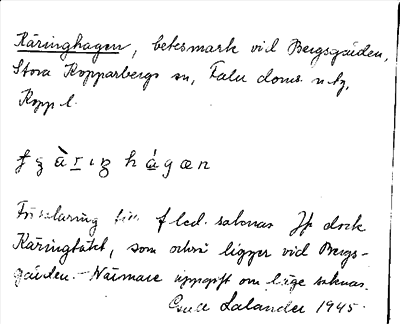 Käringhagen, betesmark vid Bergsgården,
Stora Kopparbergs sn, Falu doms. n. tg,
Kopp l.
hágæn
Förklaring för f led. saknas Jfr dock
Käringtäkt, som också ligger vid Bergs-
gården. - Närmare uppgift om läge saknas.
Lalander 1945.